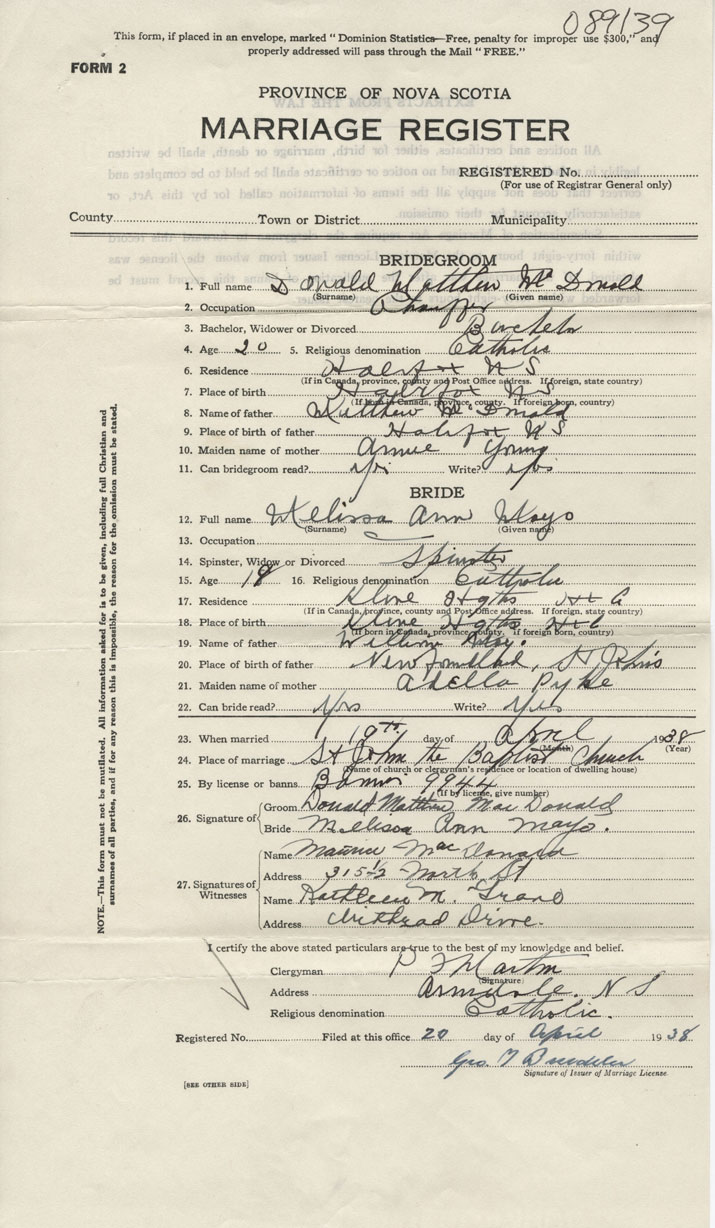 089139
This form, if placed in an envelope, marked "Dominion Statistics—Free, penalty for improper use $300," and
properly addressed will pass through the Mail "FREE."
FORM 2
PROVINCE OF NOVA SCOTIA
MARRIAGE REGISTER
REGISTERED No.
(For use of Registrar General only)
County Town or District Municipality
BRIDEGROOM
1. Full name Donald Matthew McDonald
(Surname) (Given name)
2. Occupation Chauffer
3. Bachelor, Widower or Divorced Bachelor
4. Age 20 5. Religious denomination Catholic
6. Residence Halifax N S
(If in Canada, province, county and Post Office address. If foreign, state country)
7. Place of birth Halifax N S
(If born in Canada, province, county. If foreign born, country)
8. Name of father Matthew McDonald
9. Place of birth of father Halifax N S
10. Maiden name of mother Annie Young
11. Can bridegroom read? Yes Write? Yes
BRIDE
12. Full name Melissa Ann Mayo
(Surname) (Given name)
13. Occupation
14. Spinster, Widow or Divorced Spinster
15. Age 18 16. Religious denomination Catholic
17. Residence Kline Hgths
(If in Canada, province, county and Post Office address. If foreign, state country)
18. Place of birth Kline Hgths
(If born in Canada, province, county. If foreign born, country)
19. Name of father William Mayo.
20. Place of birth of father Newfoundland, St John's
21. Maiden name of mother Adella Pyke
22. Can bride read? Yes Write? Yes
23. When married 19th day of April 1938
(Month) (Year)
24. Place of marriage St John the Baptist Church
(Name of church or clergyman's residence or location of dwelling house)
25. By license or banns Banns 9944
(If by license, give number)
26. Signature of
Groom Donald Matthew MacDonald
Bride Melissa Ann Mayo.
27. Signatures of Witnesses
Name Maurice MacDonald
Address 315½ North St
Name Kathleen M.
Address Drive.
I certify the above stated particulars are true to the best of my knowledge and belief.
Clergyman P F Martin
(Signature)
Address Armdale. N S
Religious denomination Catholic.
Registered No. Filed at this office 20 day of April 1938
Geo. T
Signature of Issuer of Marriage License.
[SEE OTHER SIDE]
NOTE.—This form must not be mutilated. All information asked for is to be given, including full Christian and
surnames of all parties, and if for any reason this is impossible, the reason for the omission must be stated.